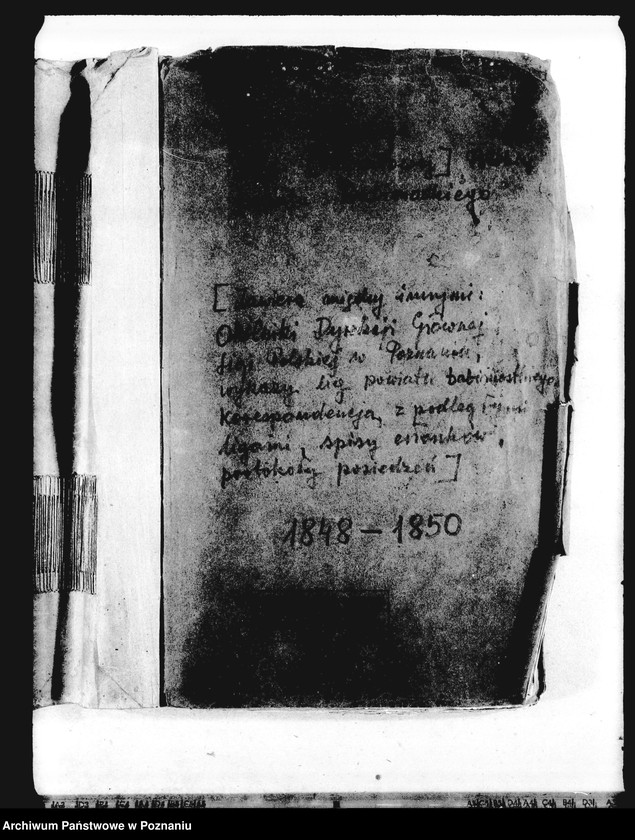 ]
[Zawiera między innymi:
Okólniki Dyrekcji Głównej
Ligi Polskiej w Poznaniu,
wykazy lig powiatu babimostskiego,
Korespondencja z podległymi
ligami, spisy członków,
protokoły posiedzeń]
1848 – 1850
Archiwum Państwowe w Poznaniu